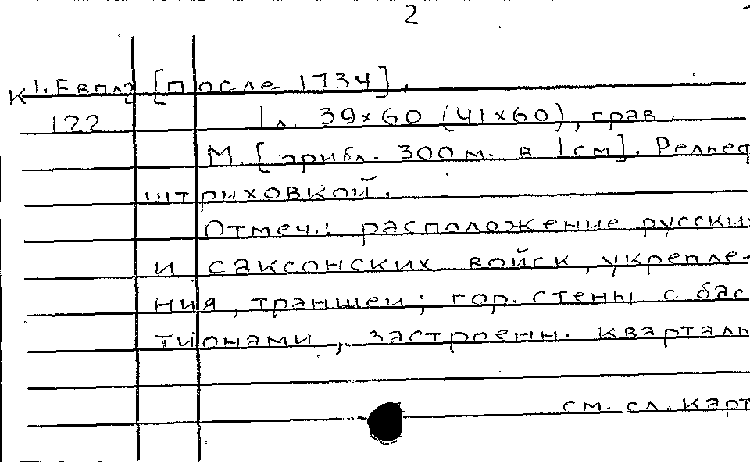 2
К 1. Евпл2 [после 1734].
122 1 л. 39×60 (41×60), грав
М. [прибл. 300 м. в 1 см]. Рельеф
штриховкой.
Отмеч.: расположение русских
и саксонских войск, укрепле-
ния, траншеи; гор. стены с бас-
тионами, застроенн. кварталы
см. сл. карт